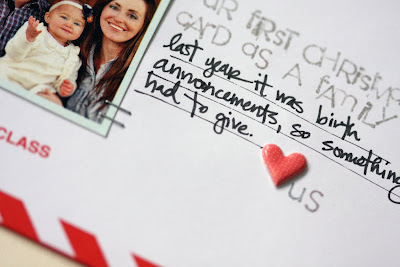 UR FIRST CHRISTMA
CARD AS A FAMILY
last year it was birth
announcements, so something
had to give.
US
CLASS